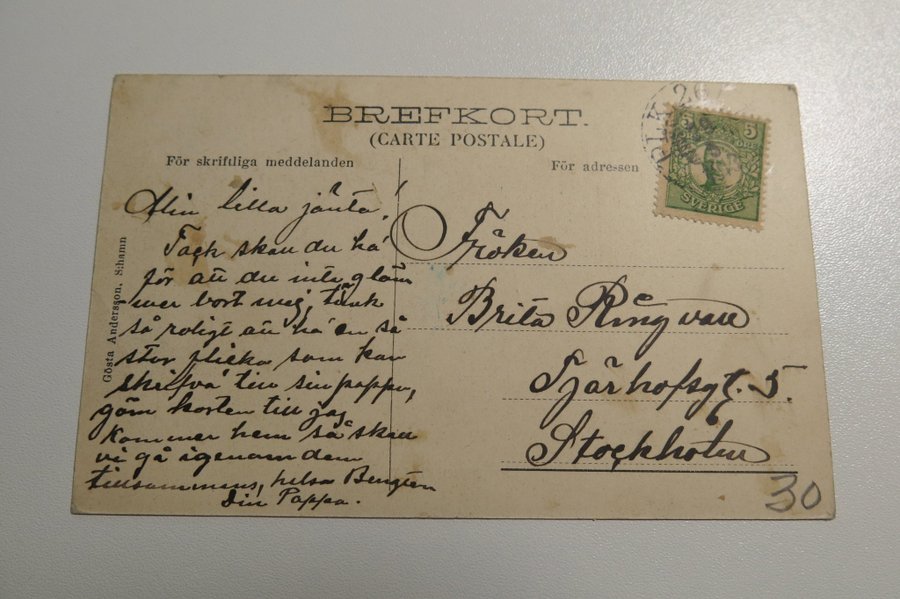 BREFKORT.
(CARTE POSTALE)
För skriftliga meddelanden
För adressen
5 5
ÖRE
SVERIGE
26
Min lilla jänta!
Tack skau du ha
för att du inte gläm
mer bort mig, tänk
så roligt att ha en så
stor flicka som kan
skrifva till sin pappa,
göm korten till jag
kommer hem så skall
vi gå igenom dem
tillsammans, helsa Bengten
Din Pappa.
Fröken
Brita Ringvall
Tjärhofsgt. 5.
Stockholm
30
Gösta Andersson, S:hamn